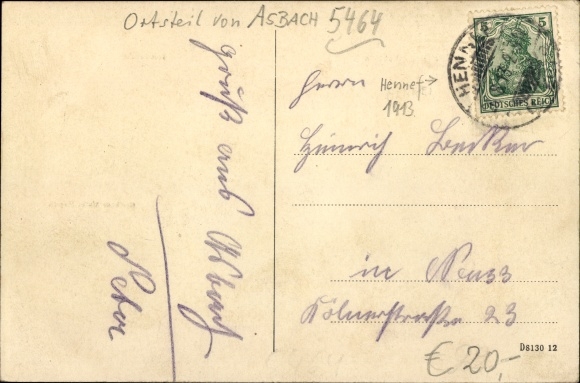 Ortsteil von ASBACH 5464
5
DEUTSCHES REICH
HENN
Hennef →
1913
Herrn
Heinrich Becker
in Neuss
Kölnerstraße 23
Gruß aus Asbach
Peter
D8130 12
€ 20,-